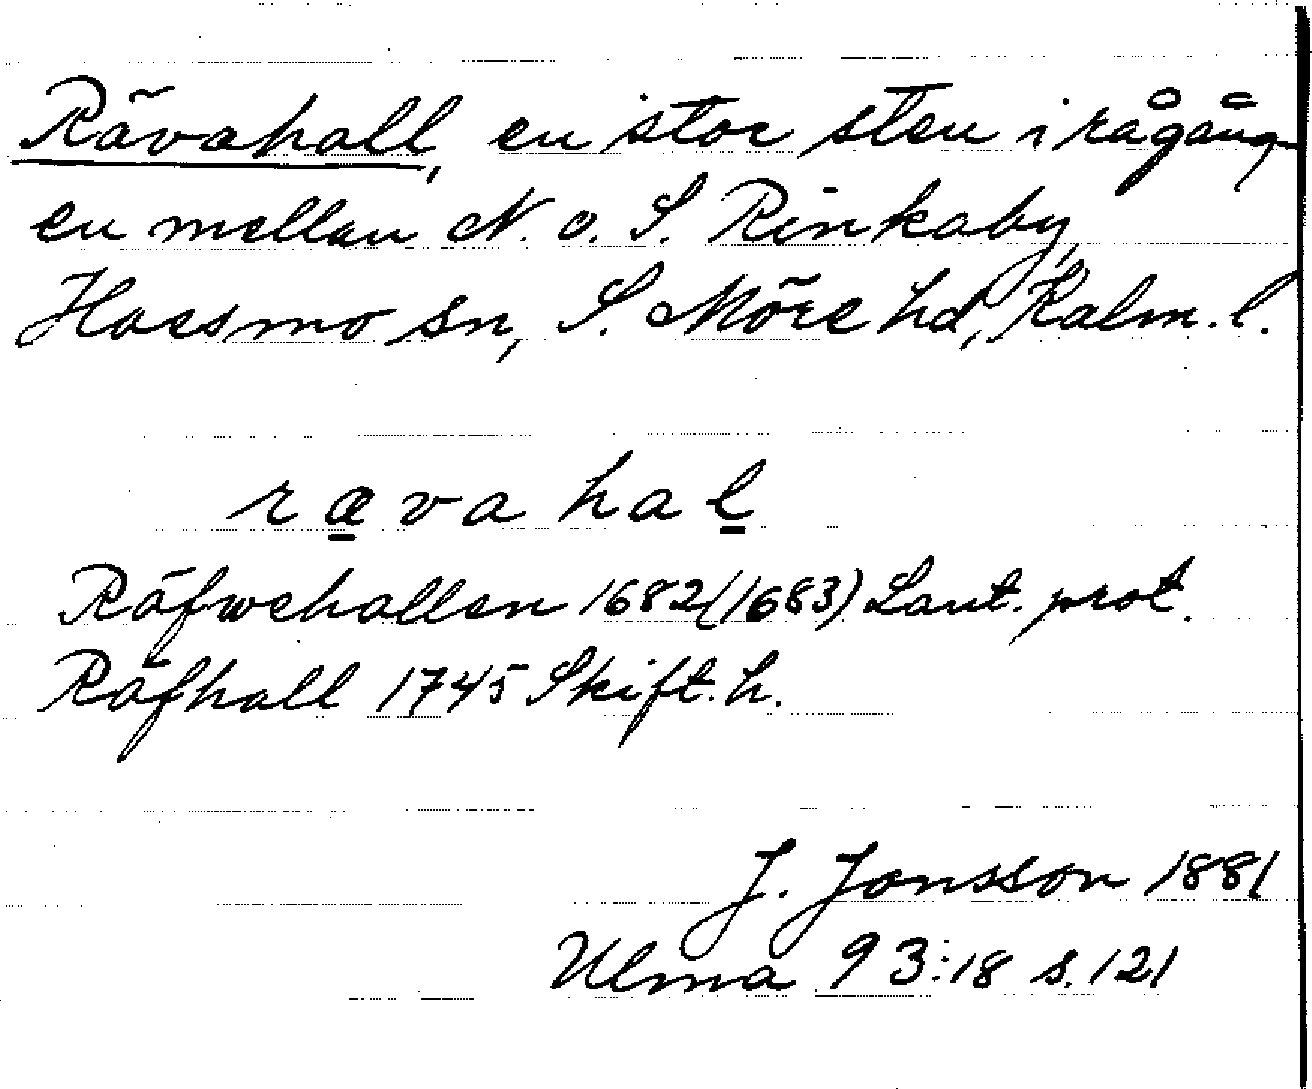 Rävahall, en stor sten i rågång
en mellan N. o. S. Rinkaby,
Hossmo sn, S. Möre hd, Kalm. l.
rævahal
Räfwehallen 1682 (1683) Lant. prot.
Räfhall 1745 Skift. h.
J. Jonsson 1881
Ulma 93:18 s. 121